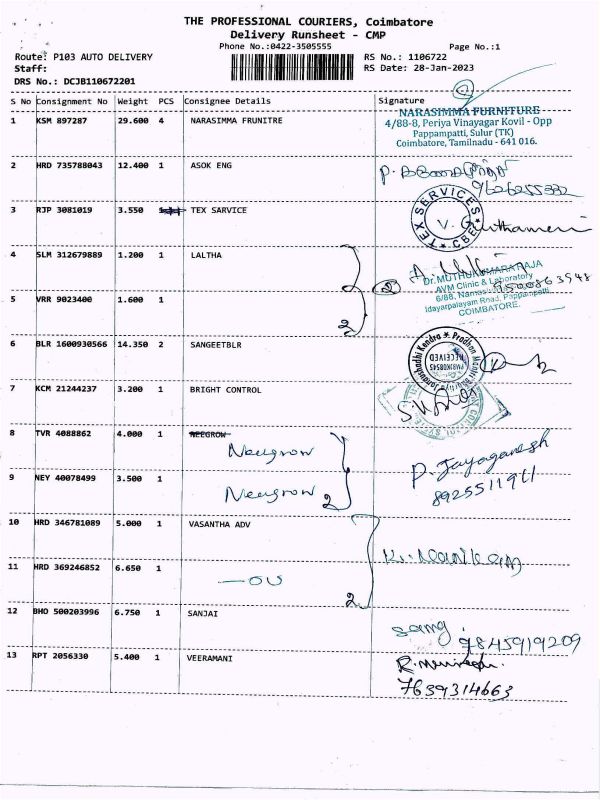 THE PROFESSIONAL COURIERS, Coimbatore
Delivery Runsheet - CMP
Phone No.:0422-3505555
Page No.:1
Route: P103 AUTO DELIVERY
RS No.: 1106722
Staff:
RS Date: 28-Jan-2023
DRS No.: DCJB110672201
S No Consignment No Weight PCS Consignee Details Signature
1 KSM 897287 29.600 4 NARASIMMA FRUNITRE
NARASIMMA FURNITURE
4/88-8, Periya Vinayagar Kovil - Opp
Pappampatti, Sulur (TK)
Coimbatore, Tamilnadu - 641 016.
2 HRD 735788043 12.400 1 ASOK ENG
9626255332
3 RJP 3081019 3.550 TEX SARVICE
TEX SERVICES CBE
4 SLM 312679889 1.200 1 LALTHA
Dr. MUTHUKUMARA RAJA
AVM Clinic & Laboratory
Idayarpalayam Road, Pappampatti
COIMBATORE.
2
5 VRR 9023400 1.600 1
2
6 BLR 1600930566 14.350 2 SANGEETBLR
RECEIVED
7 KCM 21244237 3.200 1 BRIGHT CONTROL
8 TVR 4088862 4.000 1 NEEGROW
Neegrow
P. Jayaganesh
9 NEY 40078499 3.500 1
Neegrow 2
10 HRD 346781089 5.000 1 VASANTHA ADV
11 HRD 369246852 6.650 1
2
12 BHO 500203996 6.750 1 SANJAI
9845919209
13 RPT 2056330 5.400 1 VEERAMANI
7639314663